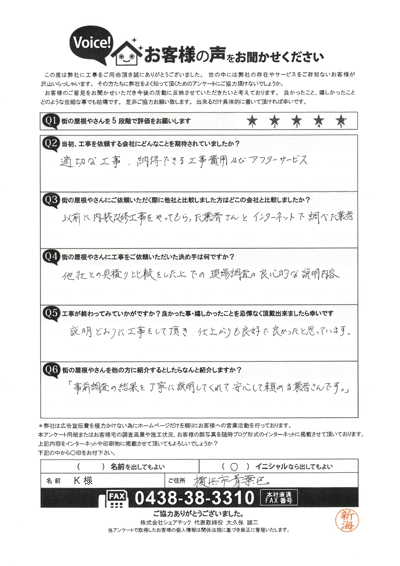 Voice!
お客様の声をお聞かせください
この度は弊社に工事をご用命頂き誠にありがとうございました。世の中には弊社の存在やサービスをご存知ないお客様が
沢山いらっしゃいます。その方たちに弊社をよく知って頂くためのアンケートにご協力頂けないでしょうか。
お客様のご意見をお聞かせいただき今後の活動に反映させていただきたいと考えております。良かったこと、嬉しかったこと
どのような些細な事でも結構です。是非ご協力お願い致します。出来るだけ具体的に書いて頂ければ幸いです。
Q1 街の屋根やさんを5段階で評価をお願いします ★ ★ ★ ★ ★
Q2 当初、工事を依頼する会社にどんなことを期待されていましたか？
適切な工事、納得できる工事費用及びアフターサービス
Q3 街の屋根やさんにご依頼いただく際に他社と比較しました方はどこの会社と比較しましたか？
以前に内装改修工事をやってもらった業者さんとインターネットで調べた業者
Q4 街の屋根やさんに工事をご依頼いただいた決め手は何ですか？
他社との見積り比較をした上での現場調査の良心的な説明内容
Q5 工事が終わってみていかがですか？良かった事・嬉しかったことを忌憚なく頂戴出来ましたら幸いです
説明どおりに工事をして頂き 仕上がりも良好で良かったと思っています。
Q6 街の屋根やさんを他の方に紹介するとしたらなんと紹介しますか？
「事前調査の結果を丁寧に説明してくれて安心して頼める業者さんです。」
＊弊社は広告宣伝費を極力かけない為にホームページだけを頼りにお客様への営業活動を行っております。
本アンケート用紙またはお客様宅の調査風景や施工状況、お客様の顔写真を随時ブログ形式のインターネットに掲載させて頂いております。
上記内容をインターネットや印刷物に掲載させて頂いてもよろしいでしょうか？
下記の中から〇印をお付下さい。
（ ）名前を出してもよい （〇）イニシャルなら出してもよい
名前 K 様 ご住所 横浜市青葉区
FAX 0438-38-3310 本社直通 FAX番号
ご協力ありがとうございました。
株式会社シェアテック 代表取締役 大久保 誠二
当アンケートで取得したお客様の個人情報は関係法令に基づき厳正に管理いたします。
新海